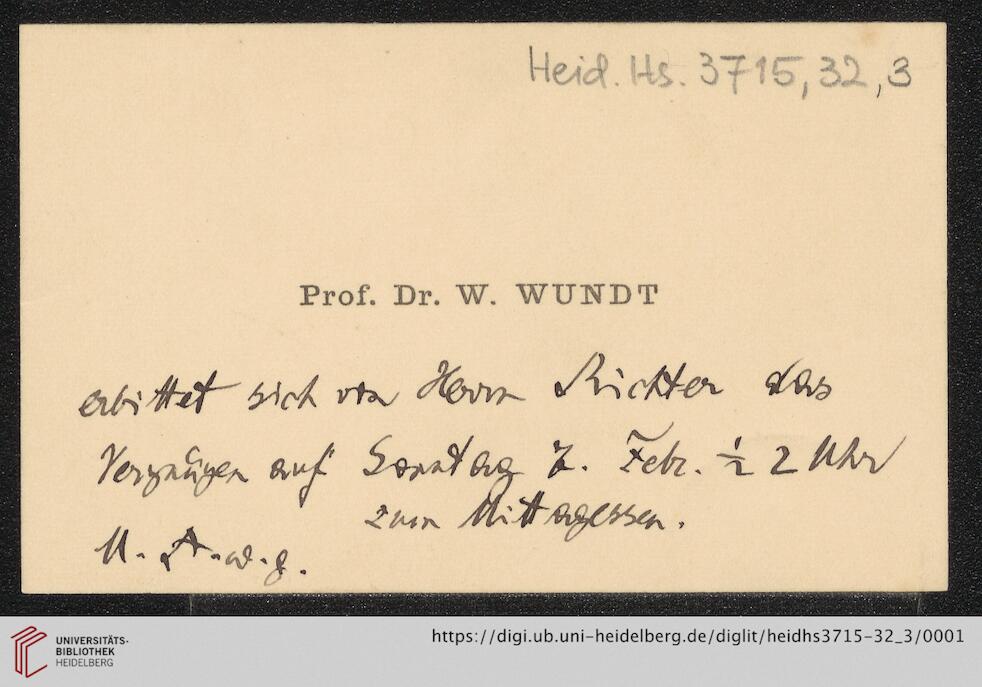 Heid. Hs. 3715, 32, 3
Prof. Dr. W. WUNDT
erbittet sich von Herrn Richter das
Vergnügen auf Sonntag 7. Febr. ½ 2 Uhr
zum Mittagessen.
U. A. w. g.
UNIVERSITÄTS-
BIBLIOTHEK
HEIDELBERG
https://digi.ub.uni-heidelberg.de/diglit/heidhs3715-32_3/0001